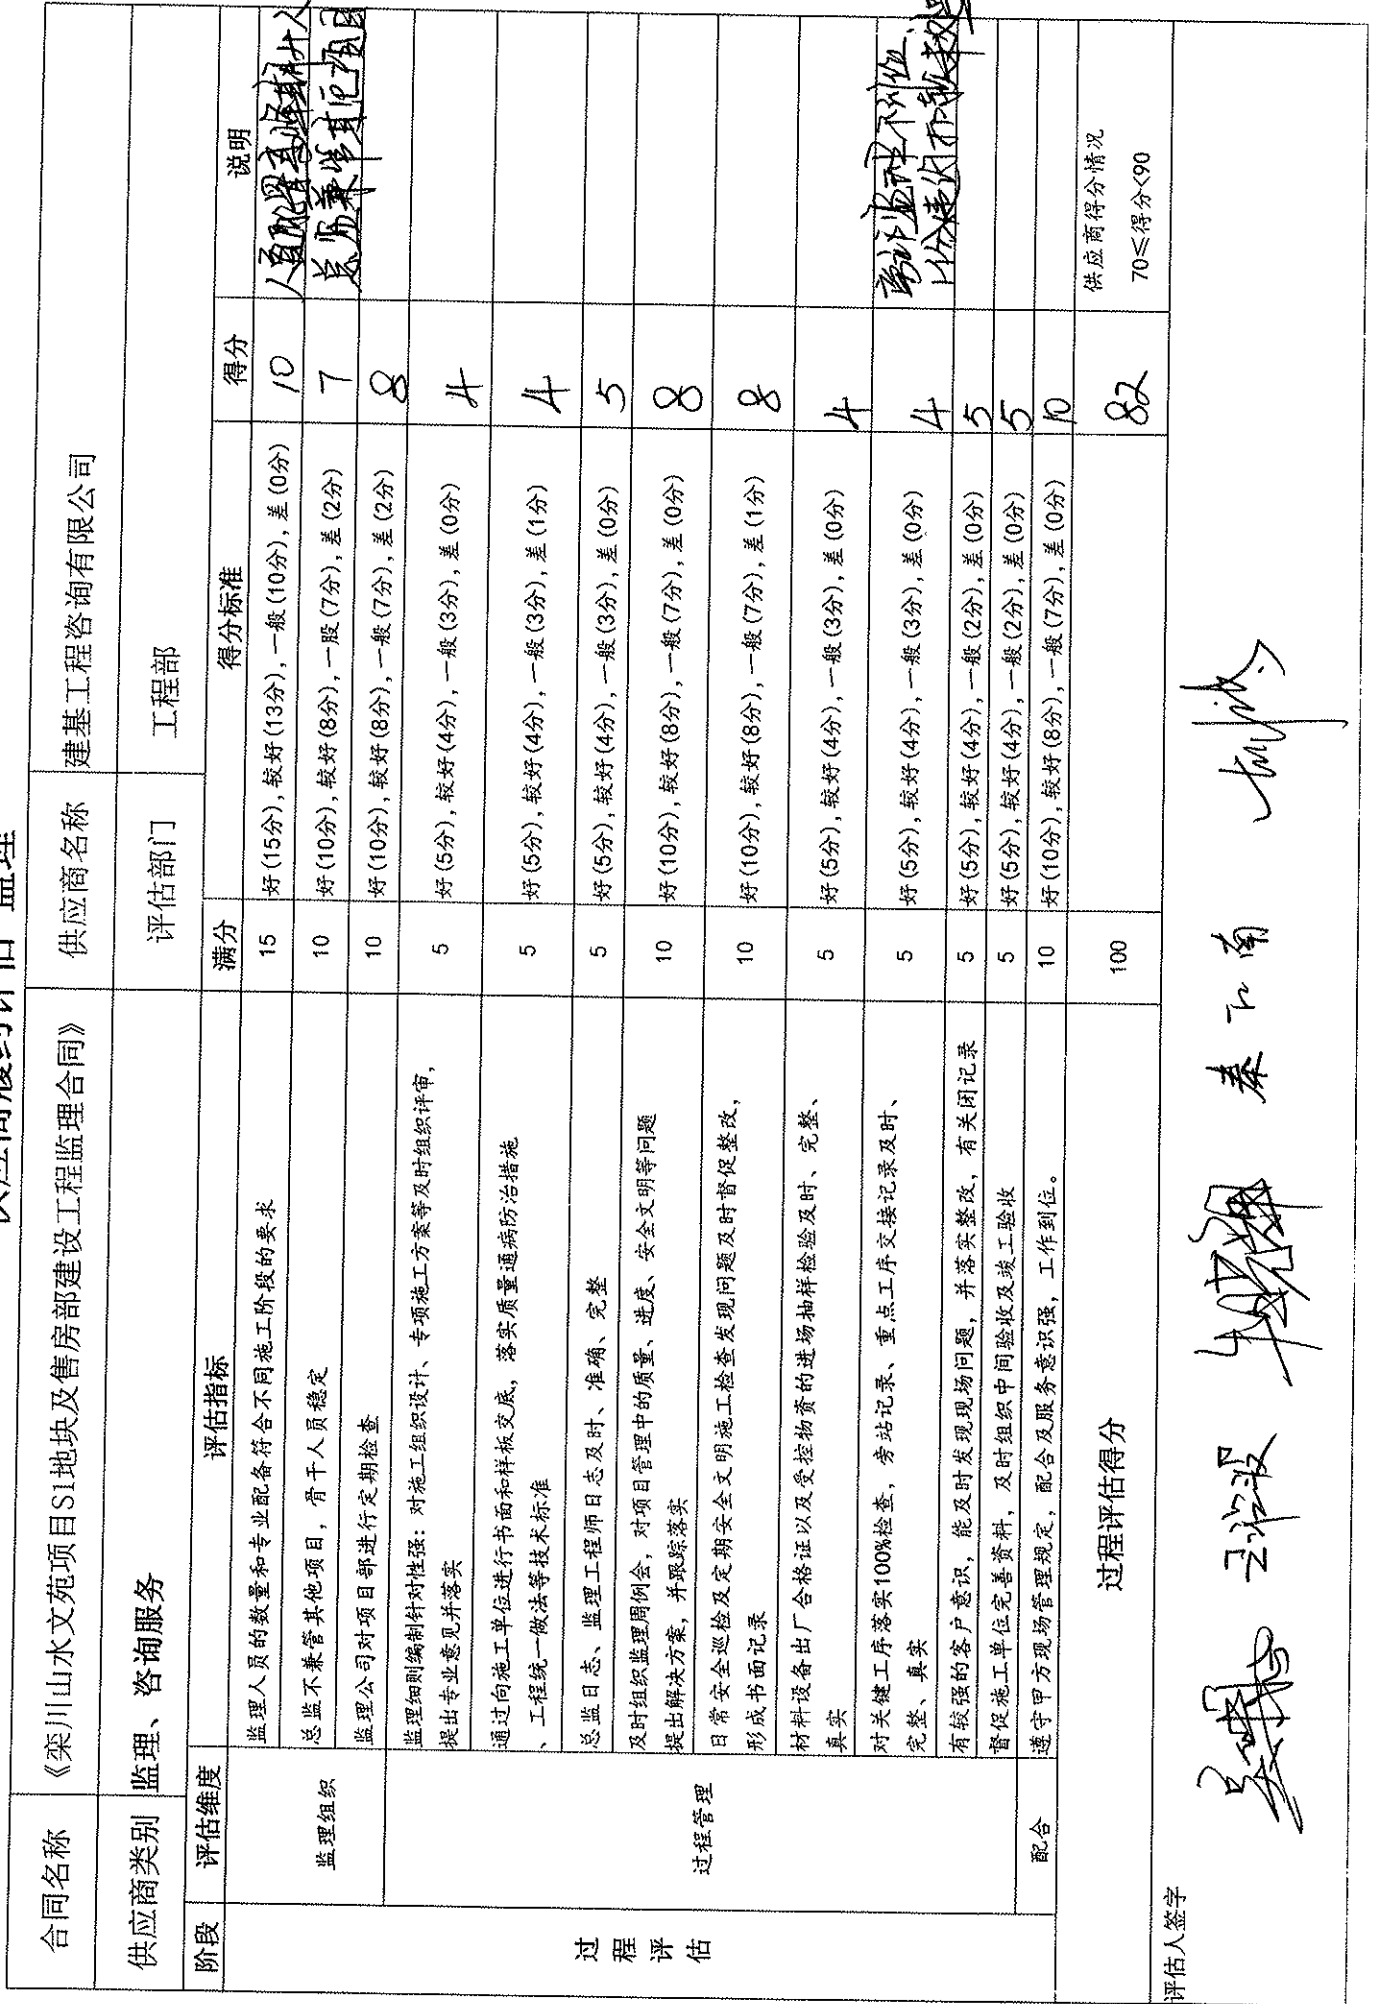 供应商履约评估 监理
合同名称 《栾川山水文苑项目S1地块及售房部建设工程监理合同》 供应商名称 建基工程咨询有限公司
供应商类别 监理、咨询服务 评估部门 工程部
阶段 评估维度 评估指标 满分 得分标准 得分 说明
过程评估
监理组织
监理人员的数量和专业配备符合不同施工阶段的要求 15 好(15分),较好(13分),一般(10分),差(0分) 10
总监不兼管其他项目,骨干人员稳定 10 好(10分),较好(8分),一般(7分),差(2分) 7
监理公司对项目部进行定期检查 10 好(10分),较好(8分),一般(7分),差(2分) 8
过程管理
监理细则编制针对性强:对施工组织设计、专项施工方案等及时组织评审,
提出专业意见并落实 5 好(5分),较好(4分),一般(3分),差(0分) 4
通过向施工单位进行书面和样板交底,落实质量通病防治措施
、工程统一做法等技术标准 5 好(5分),较好(4分),一般(3分),差(1分) 4
总监日志、监理工程师日志及时、准确、完整 5 好(5分),较好(4分),一般(3分),差(0分) 5
及时组织监理周例会,对项目管理中的质量、进度、安全文明等问题
提出解决方案,并跟踪落实 10 好(10分),较好(8分),一般(7分),差(0分) 8
日常安全巡检及定期安全文明施工检查发现问题及时督促整改,
形成书面记录 10 好(10分),较好(8分),一般(7分),差(1分) 8
材料设备出厂合格证以及受控物资的进场抽样检验及时、完整、
真实 5 好(5分),较好(4分),一般(3分),差(0分) 4
对关键工序落实100%检查,旁站记录、重点工序交接记录及时、
完整、真实 5 好(5分),较好(4分),一般(3分),差(0分) 4
有较强的客户意识,能及时发现现场问题,并落实整改,有关闭记录 5 好(5分),较好(4分),一般(2分),差(0分) 5
督促施工单位完善资料,及时组织中间验收及竣工验收 5 好(5分),较好(4分),一般(2分),差(0分) 5
配合 遵守甲方现场管理规定,配合及服务意识强,工作到位。 10 好(10分),较好(8分),一般(7分),差(0分) 10
过程评估得分 100 82 供应商得分情况
70≤得分<90
评估人签字